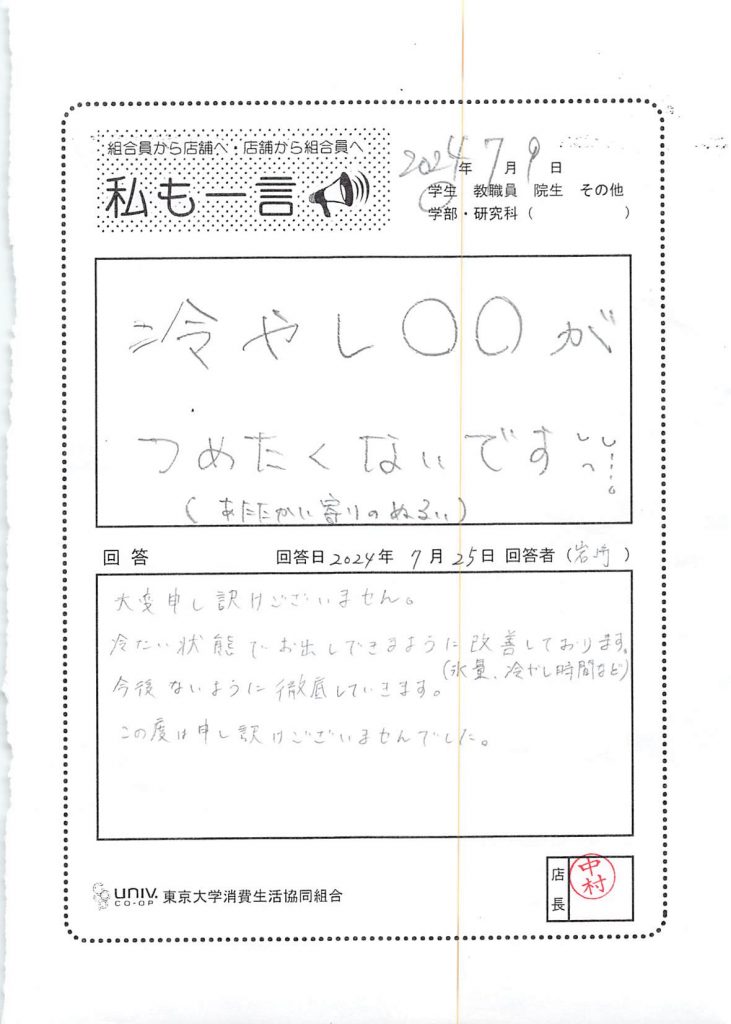 組合員から店舗へ・店舗から組合員へ
私も一言
2024年 7月 9日
学生 教職員 院生 その他
学部・研究科 ( )
冷やし〇〇が
つめたくないです…
(あたたかい寄りのぬるい)
回答 回答日 2024年 7月 25日 回答者 (岩崎)
大変申し訳けございません。
冷たい状態でお出しできまように改善しております。
(氷量、冷やし時間など)
今後ないように徹底していきます。
この度は申し訳けございませんでした。
UNIV. CO-OP 東京大学消費生活協同組合
店長
中村